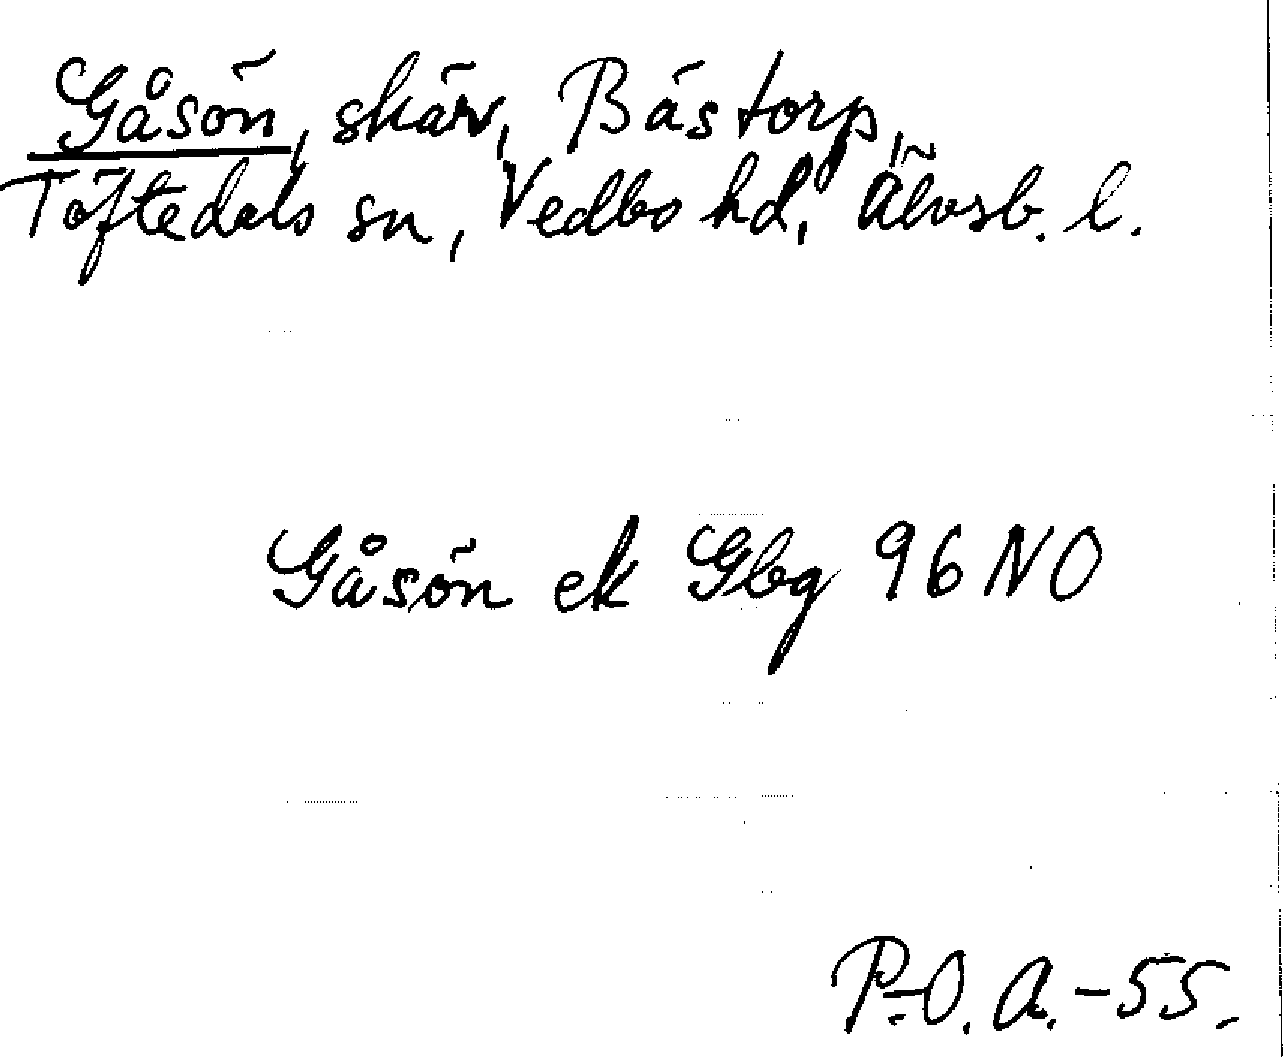 Gåsön, skär, Bästorp,
Töftedals sn, Vedbo hd, Älvsb. l.
Gåsön ek Gbg 96 NO
P.-O. A. -55.